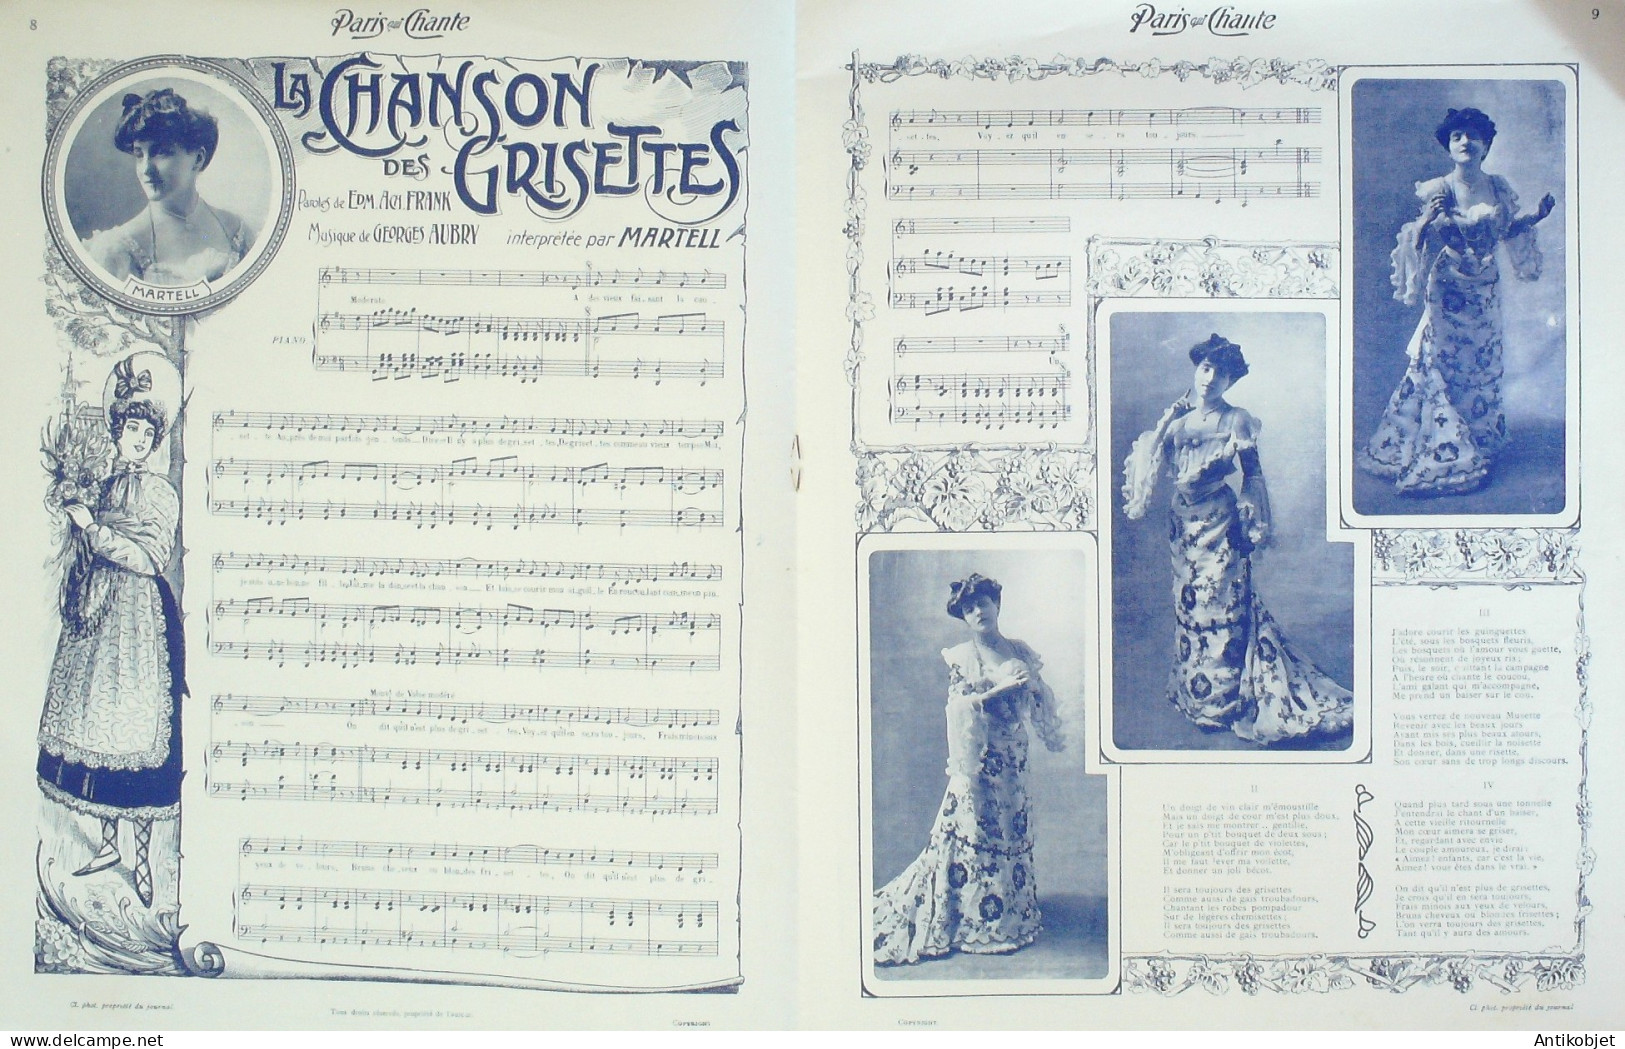 8
Paris qui Chante
LA CHANSON
DES GRISETTES
Paroles de EDM. ACH. FRANK
Musique de GEORGES AUBRY
interprétée par MARTELL
MARTELL
Moderato
A des vieux fai_sant la cau_
PIANO
Mouvt de Valse modéré
_son On dit qu'il n'est plus de gri_set_tes, Voy_
yeux de ve_lours, Bruns che_veux ou blon_des fri_set_tes, On dit qu'il n'est plus de gri_
Cl. phot. propriété du journal.
Tous droits réservés, propriété de l'auteur.
COPYRIGHT
Paris qui Chante
9
_set_tes, Voy_er qu'il en se_ra tou_jours.
Un
II
Un doigt de vin clair m'émoustille
Mais un doigt de cour m'est plus doux,
Et je sais me montrer... gentille,
Pour un p'tit bouquet de deux sous ;
Car le p'tit bouquet de violettes,
M'obligeant d'offrir mon écot,
Il me faut lever ma voilette,
Et donner un joli bécot.
Il sera toujours des grisettes
Comme aussi de gais troubadours,
Chantant les robes pompadour
Sur de légères chemisettes ;
Il sera toujours des grisettes
Comme aussi de gais troubadours.
III
J'adore courir les guinguettes
L'été, sous les bosquets fleuris,
Les bosquets où l'amour vous guette,
Où résonnent de joyeux ris ;
Puis, le soir, quittant la campagne
A l'heure où chante le coucou,
L'ami galant qui m'accompagne,
Me prend un baiser sur le cou.
Vous verrez de nouveau Musette
Revenir avec les beaux jours
Ayant mis ses plus beaux atours,
Dans les bois, cueillir la noisette
Et donner, dans une risette,
Son cœur sans de trop longs discours.
IV
Quand plus tard sous une tonnelle
J'entendrai le chant d'un baiser,
A cette vieille ritournelle
Mon cœur aimera se griser,
Et, regardant avec envie
Le couple amoureux, je dirai :
« Aimez ! enfants, car c'est la vie,
Aimez ! vous êtes dans le vrai. »
On dit qu'il n'est plus de grisettes,
Je crois qu'il en sera toujours,
Frais minois aux yeux de velours,
Bruns cheveux ou blondes frisettes ;
L'on verra toujours des grisettes,
Tant qu'il y aura des amours.
COPYRIGHT
Cl. phot. propriété du journal.
Antikobjet